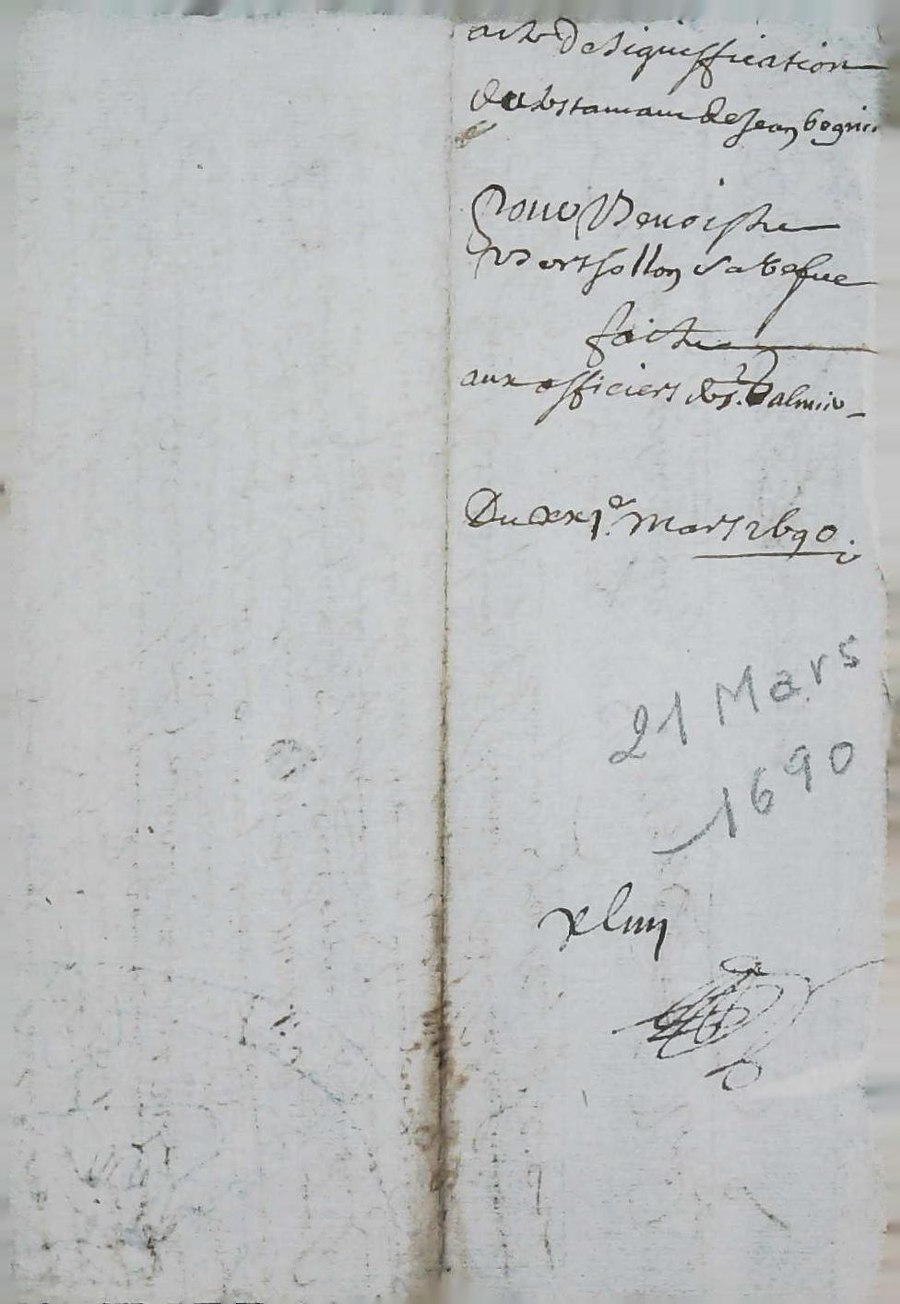 acte de signiffication
du testamant de Jean begni
Pour Benoiste
Berthollon sa vefue
faicte
aux officiers de st. Galmier
Du xxi.e Mars 1690.
21 Mars
1690